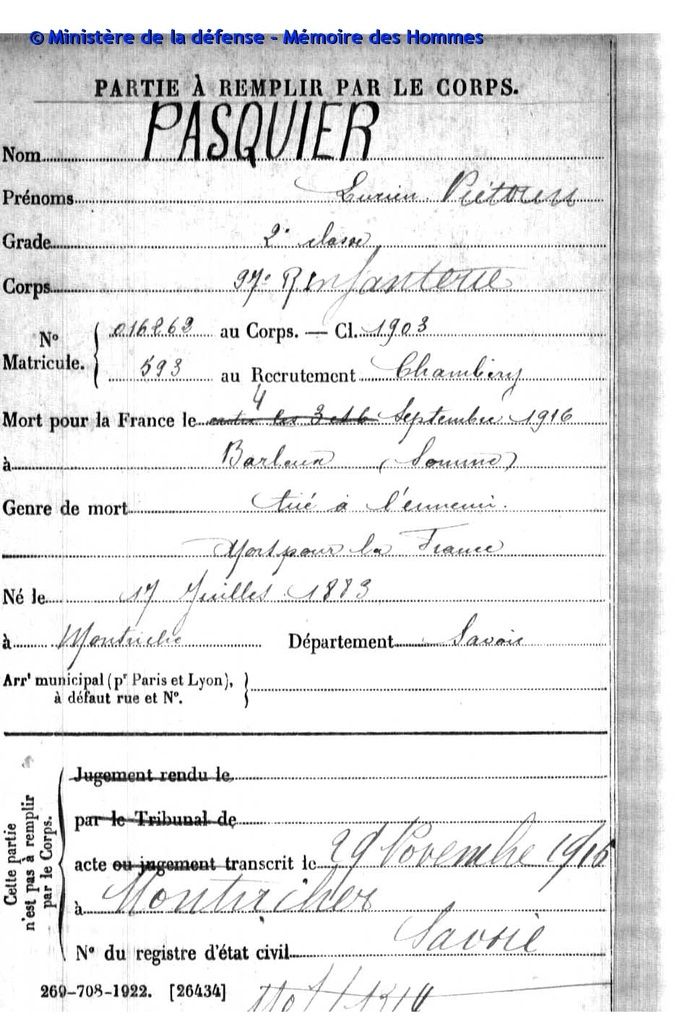 © Ministère de la défense - Mémoire des Hommes
PARTIE À REMPLIR PAR LE CORPS.
Nom PASQUIER
Prénoms Lucien
Grade 2e classe
Corps 97e R Infanterie
No Matricule. { 016262 au Corps. — Cl. 1903
593 au Recrutement Chambéry
4
Mort pour la France le entre les 3 et 6 Septembre 1916
à Barleux (Somme)
Genre de mort tué à l'ennemi.
Mort pour la France
Né le 17 Juillet 1883
à Montricher Département Savoie
Arrt municipal (pr Paris et Lyon), }
à défaut rue et No.
Cette partie n'est pas à remplir par le Corps.
Jugement rendu le
par le Tribunal de
acte ou jugement transcrit le 29 Novembre 1916
à Montricher
Savoie
No du registre d'état civil
269-708-1922. [26434]